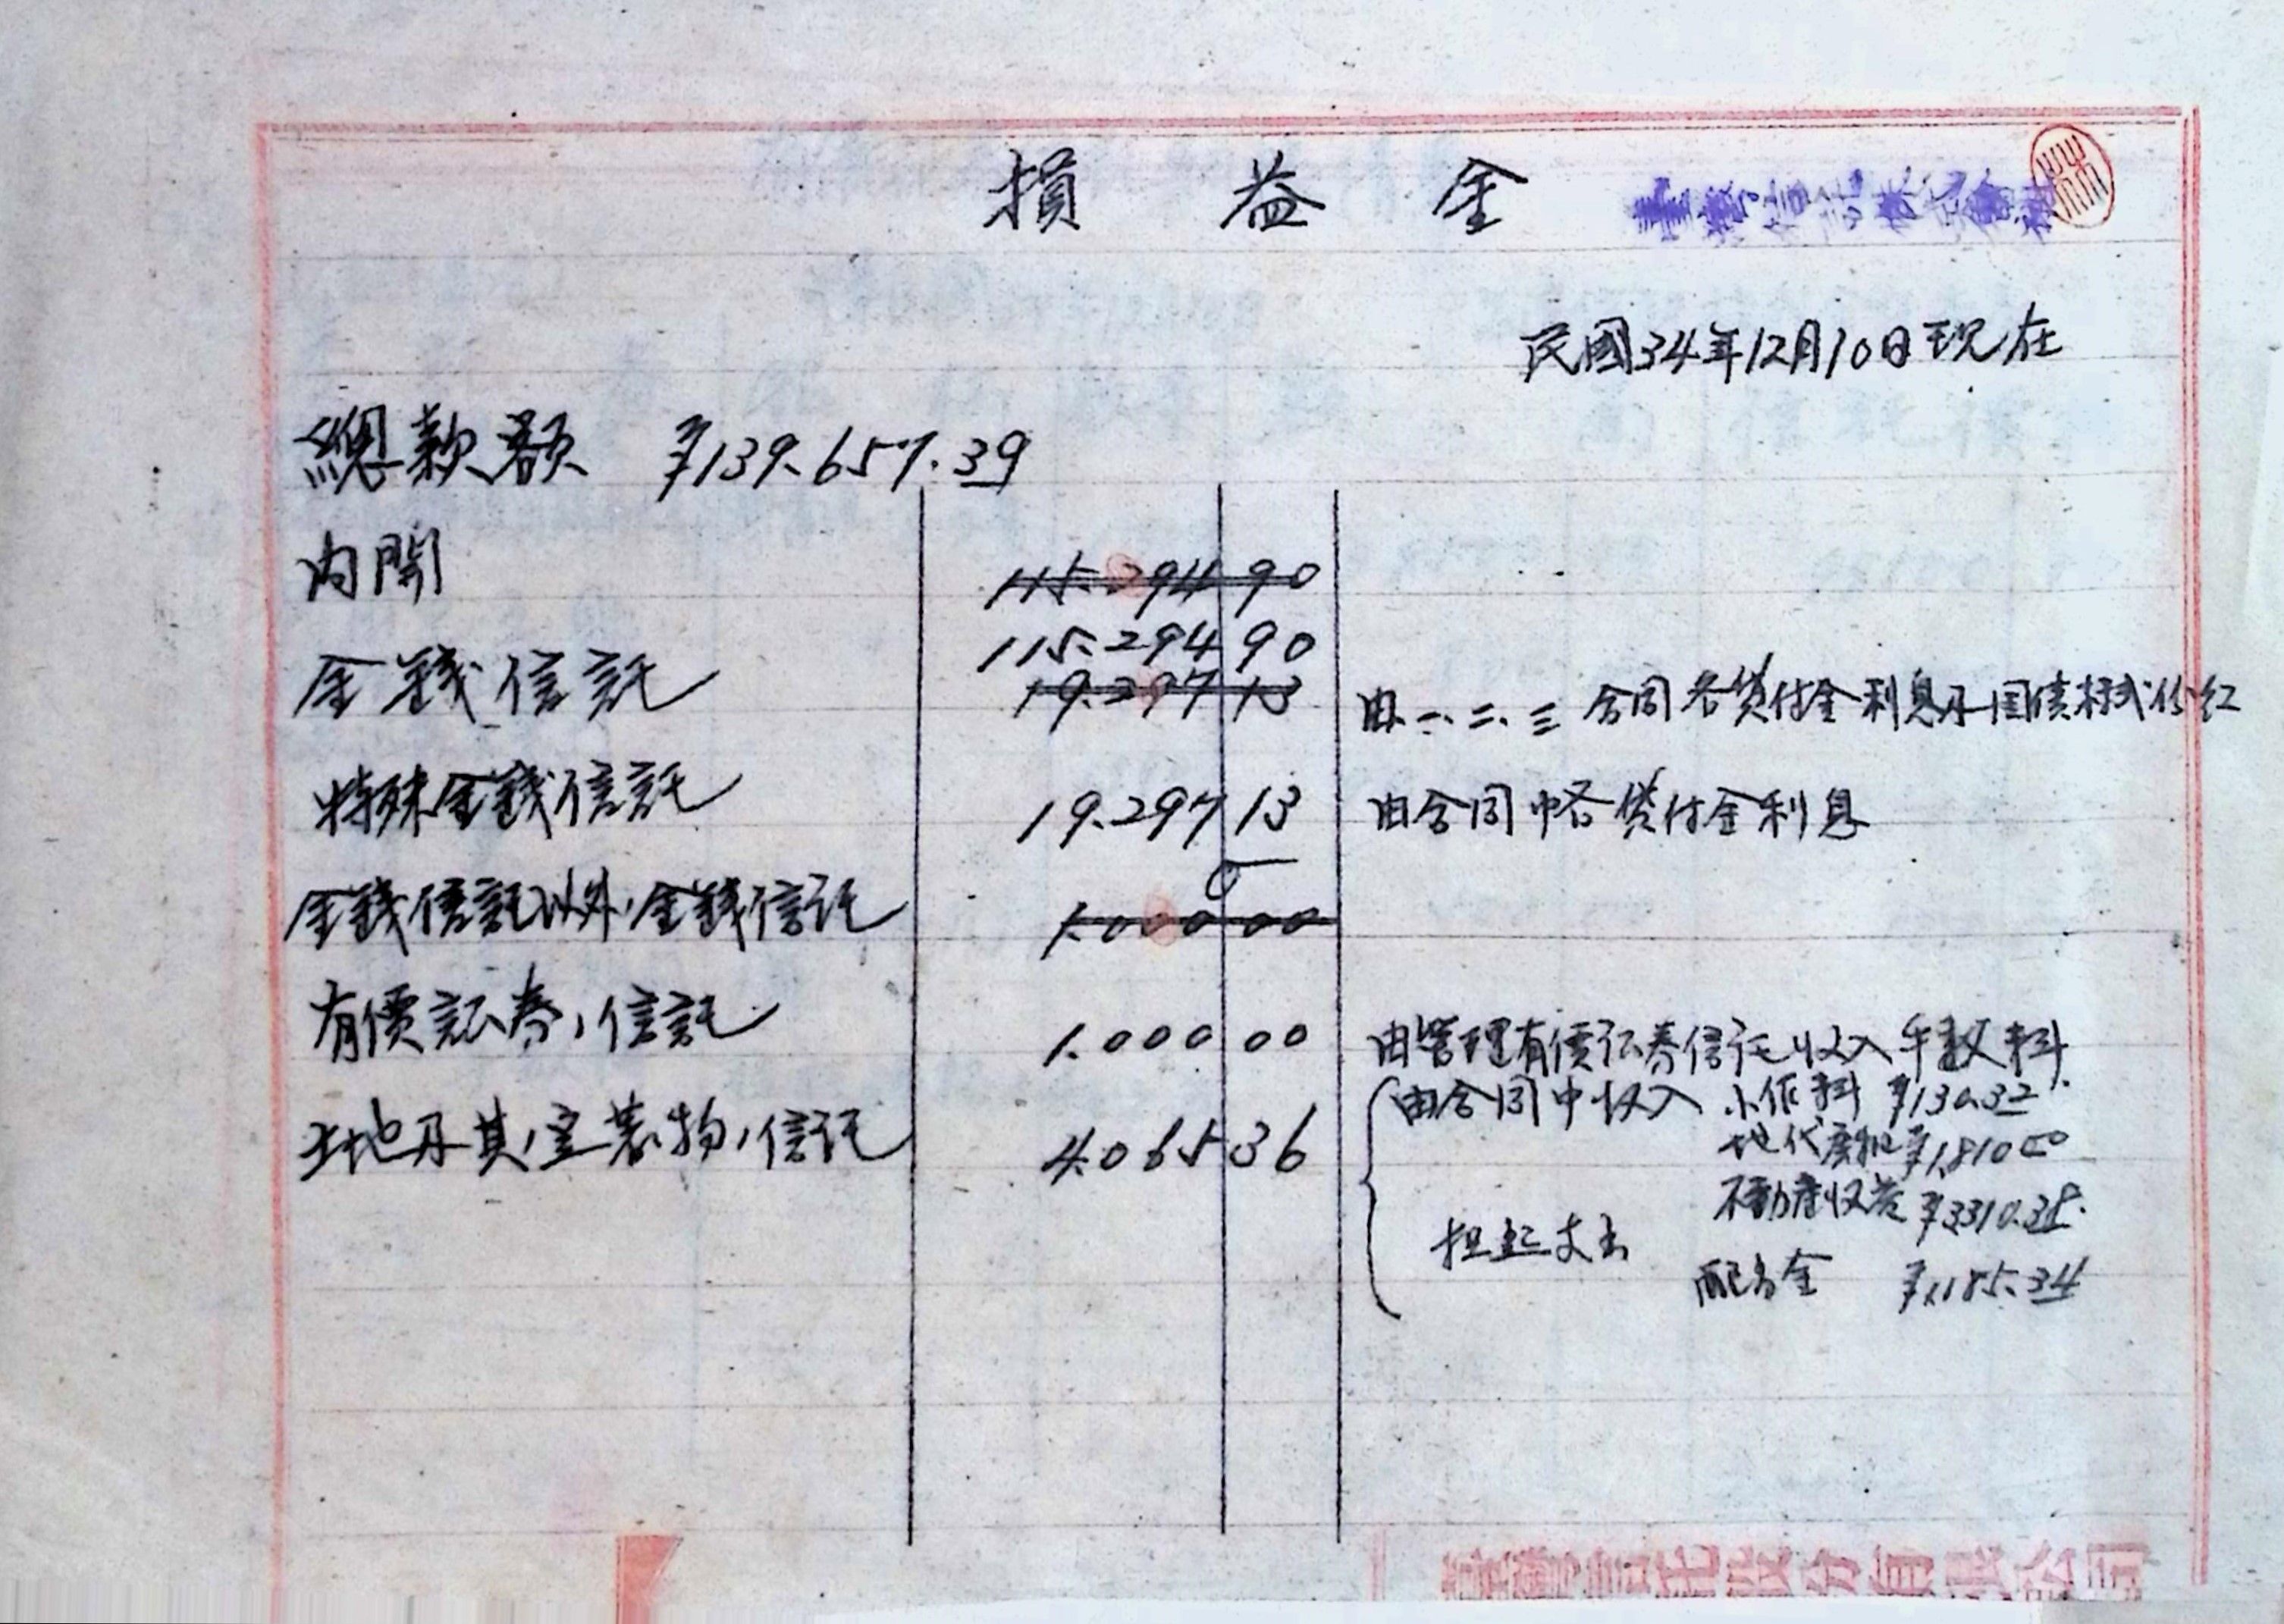 損益金
臺灣信託株式會社
民國34年12月10日現在
總款額 ¥139.657.39
内開
115.294 90
115.294 90
金錢信託
19.297 13
由一.二.三 合同各貸付金利息及国債株式份红
特殊金錢信託 19.297 13 由合同中各貸付金利息
金錢信託以外ノ金錢信託 0
1.000 00
有價証券ノ信託 1.000 00 由管理有價証券信託收入手数料
土地及其ノ定著物ノ信託 4.065 36
由合同中收入 小作料 ¥130.32
地代 ¥1,810.00
不動產收益 ¥3310.38
担起支出
配当金 ¥1,185.34
臺灣信託股份有限公司